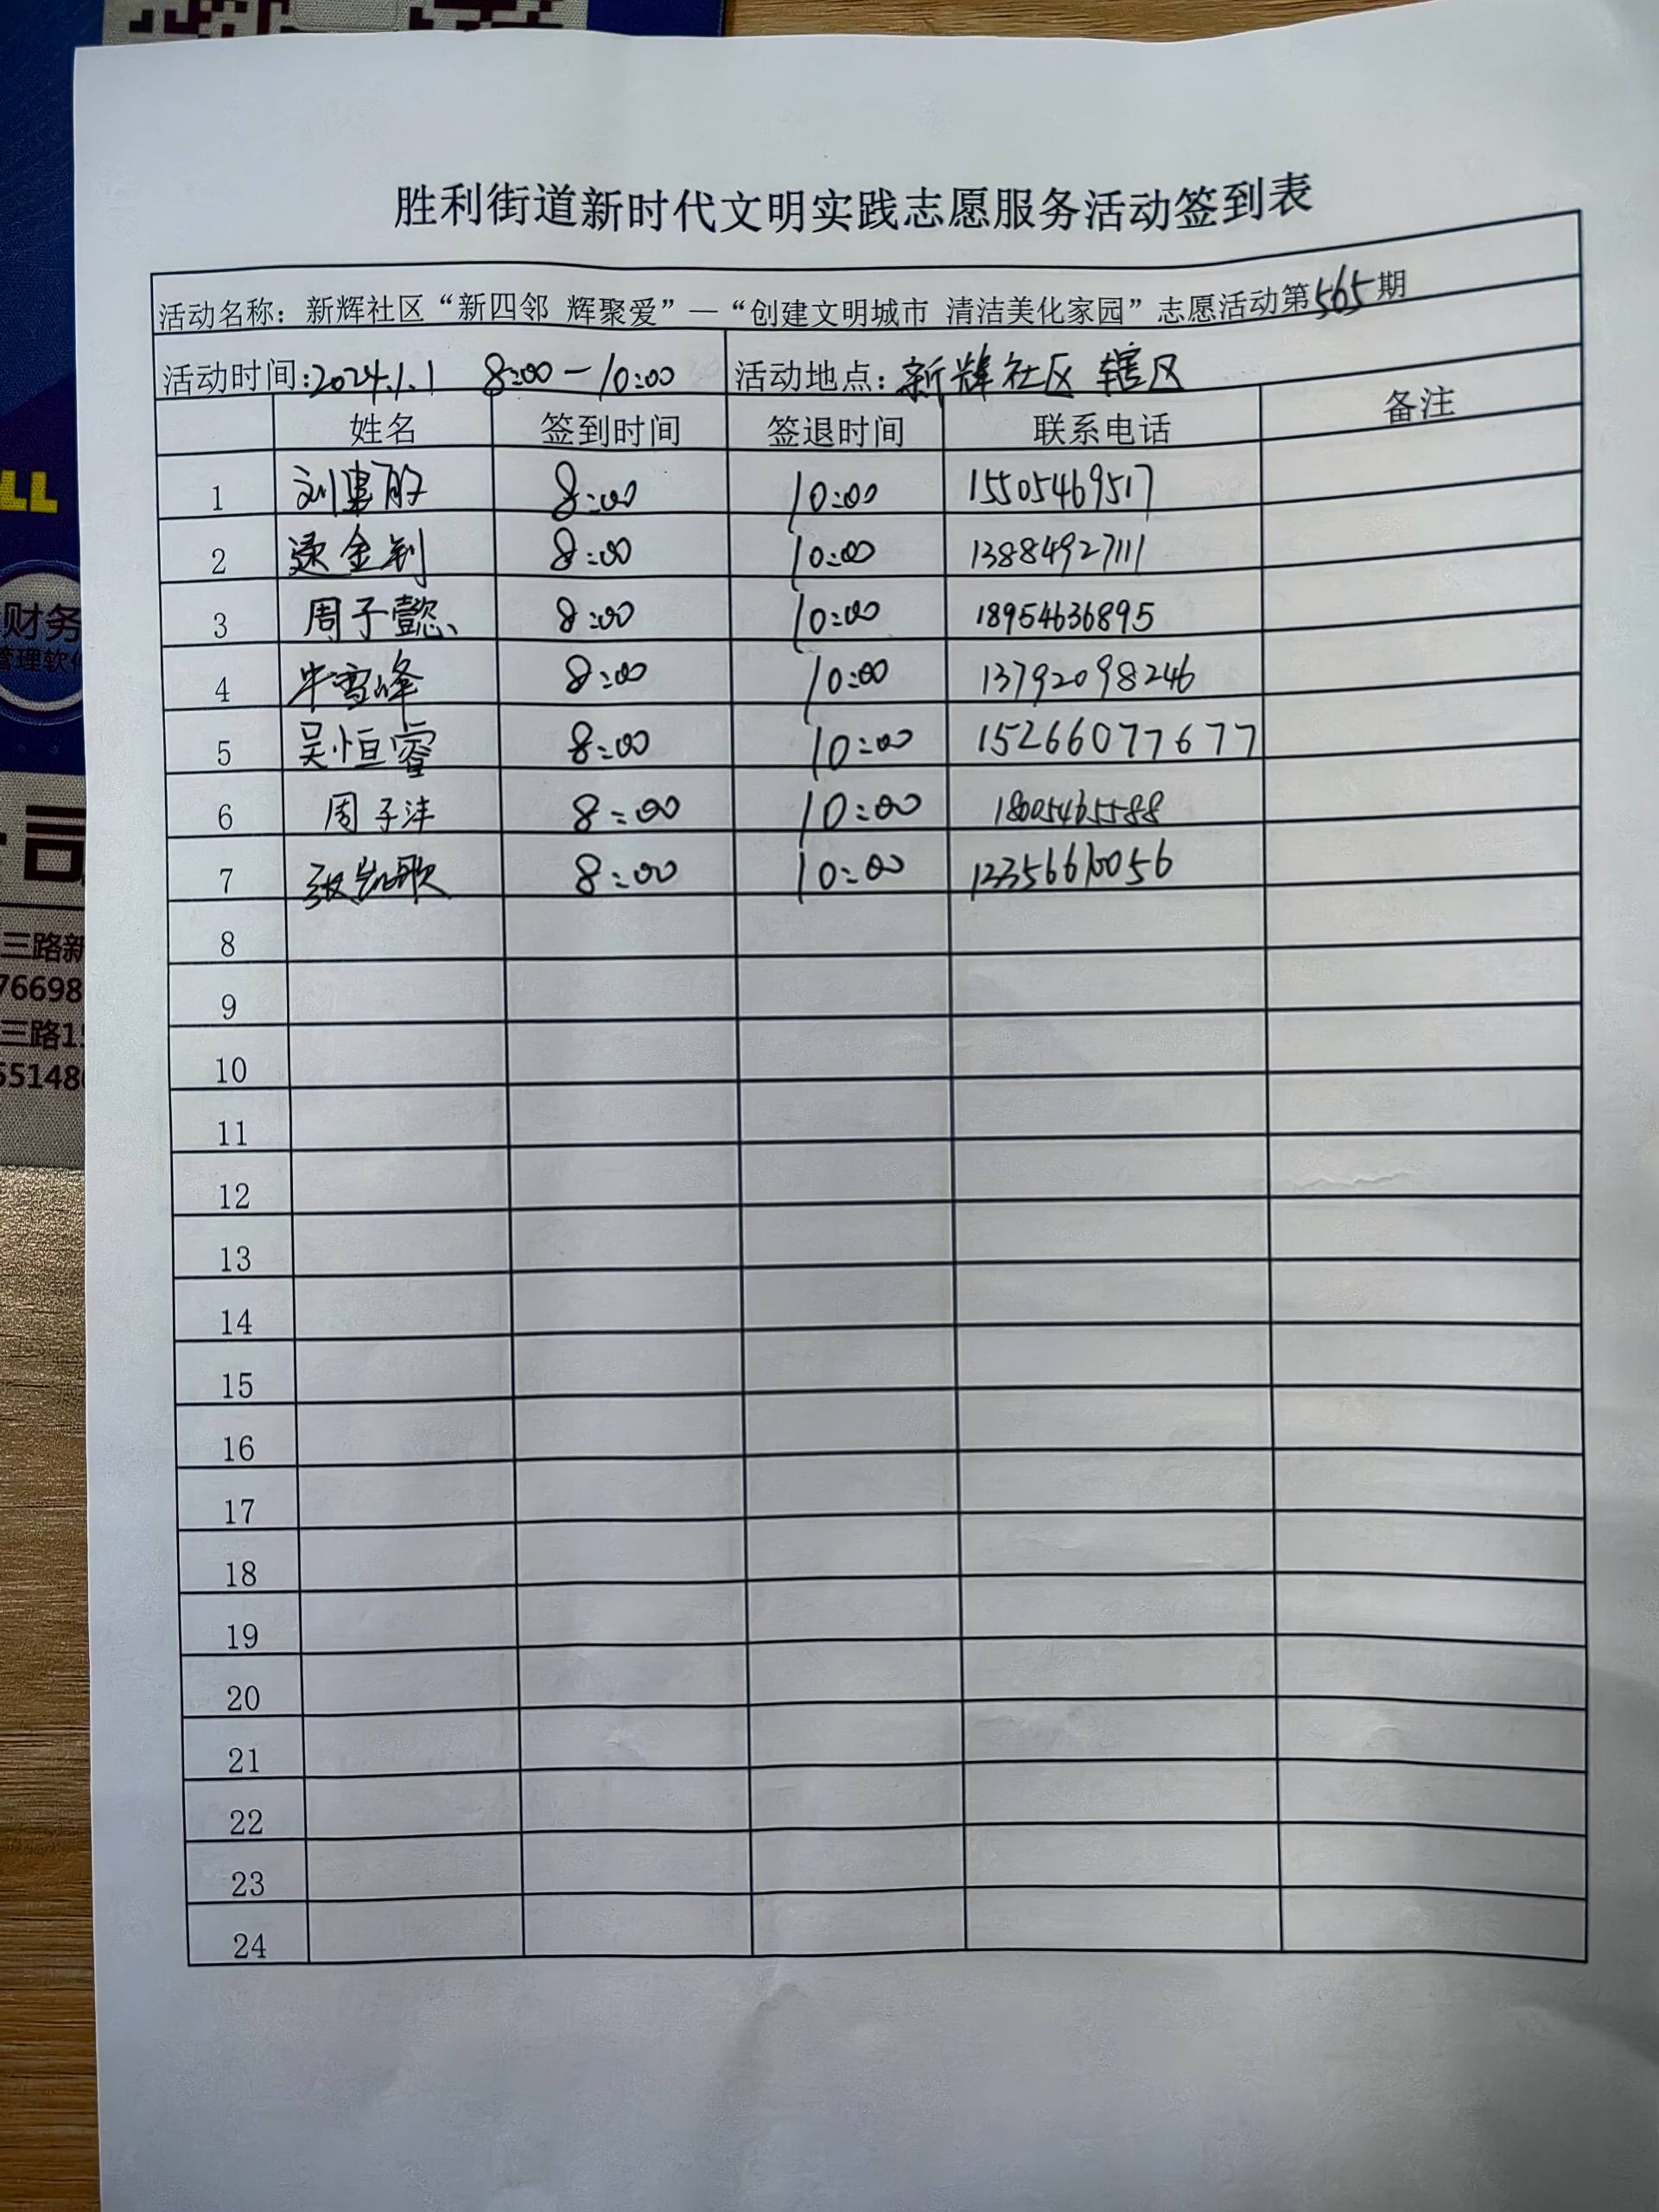 胜利街道新时代文明实践志愿服务活动签到表
活动名称：新辉社区“新四邻 辉聚爱”—“创建文明城市 清洁美化家园”志愿活动第565期
活动时间:2024.1.1 8:00-10:00 活动地点：新辉社区 辖区
姓名 签到时间 签退时间 联系电话 备注
1 8:00 10:00 15505469517
2 逯金钊 8:00 10:00 13884927111
3 周子懿 8:00 10:00 18954636895
4 牛雪峰 8:00 10:00 13792098246
5 吴恒睿 8:00 10:00 15266077677
6 周子沣 8:00 10:00 18005465588
7 张凯歌 8:00 10:00
8
9
10
11
12
13
14
15
16
17
18
19
20
21
22
23
24
LL
财务
管理软件
三路新
76698
三路1
55148